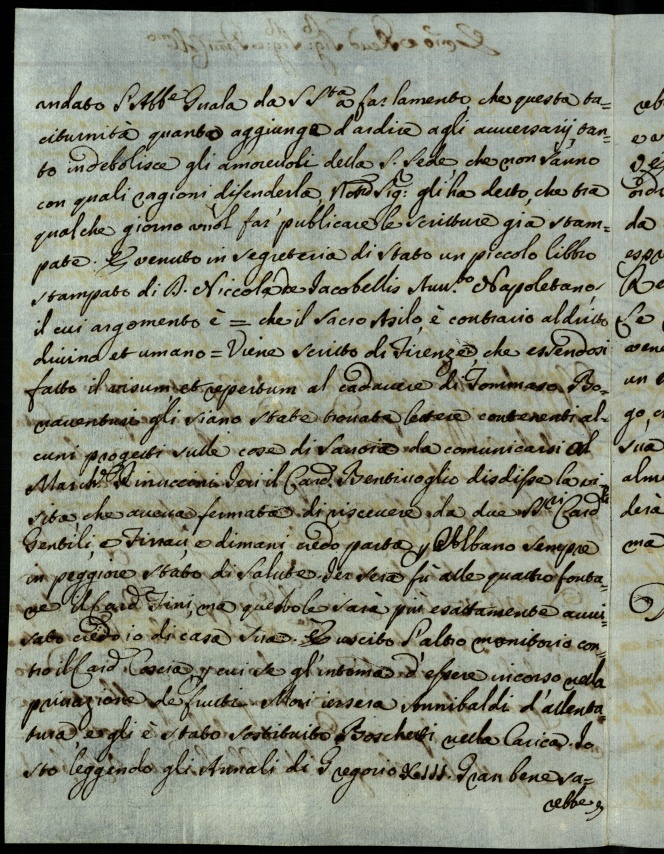 andato l'Abb.e Guala da S. Sta a far lamento, che questa ta=
citurnità quanto aggiunge d'ardire agli auuersarij, tan=
to indebolisce gli amoreuoli della S. Sede, che non sanno
con quali ragioni difenderla, Nrō Sig.r gli ha detto, che tra
qualche giorno uuol far' publicare le scritture già stam=
pate. È venuto in segreteria di stato un piccolo libbro
stampato di D. Niccola de Jacobellis Auu.to Napoletano,
il cui argomento è = che il sacro Asilo, è contrario al diritto
diuino et umano = Viene scritto di Firenze che essendosi
fatto il visum et repertum al cadauere di Tommaso Bo=
nauenturi gli siano state trouate lettere contenenti al=
cuni progetti sulle cose di Sauoia da comunicarsi al
March.e Rinuccini. Ieri il Card. Bentiuoglio disdisse la ui=
sita, che aueua fermata di riceuere da due SS.ri Card.
Gentili, e Firrau, e dimani credo parta p Albano sempre
in peggiore stato di salute. Ier sera fù alle quattro fonta=
ne il Card. Fini, ma questo le sarà più esattamente auui=
sato credo io di casa sua. È uscito l'altro monitorio con=
tro il Card. Coscia, p cui se gl'intima d'essere incorso nella
priuazione de frutti. Morì iersera Annibaldi d'allenta=
tura, e gli è stato sostituito Boschetti nella Carica. Io
sto leggendo gli Annali di Gregorio XIII. Gran bene sa=
rebbe,